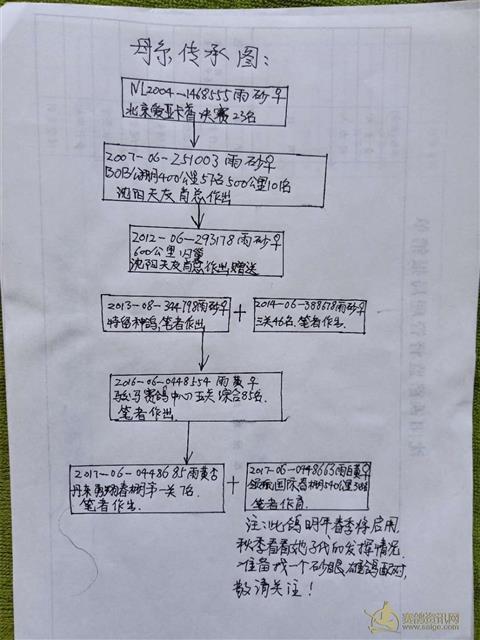 丹系传承图:
NL2004-1468555雨砂♀
北京爱亚卡普决赛23名
2007-06-251003雨砂♀
BOB公棚400公里57名500公里101名
沈阳天友肖总作出
2012-06-293178雨砂♀
600公里归巢
沈阳天友肖总作出,赠送
2013-08-344798雨砂♀
特留种鸽,笔者作出
+
2014-06-388678雨砂♀
三关46名.笔者作出.
2016-06-0448554雨黄♀
骏马赛鸽中心五关综合85名.
笔者作出.
2017-06-0448685雨黄♀
丹东 春棚第一关7名.
笔者作出.
+
2017-06-0448663雨白黄♀
国际春棚540公里
笔者作育.
注:此鸽明年春季将启用,
秋季看看她子代的发挥情况.
准备找一个砂眼雄鸽配对,
敬请关注!
赛鸽资讯网
www.saige.com